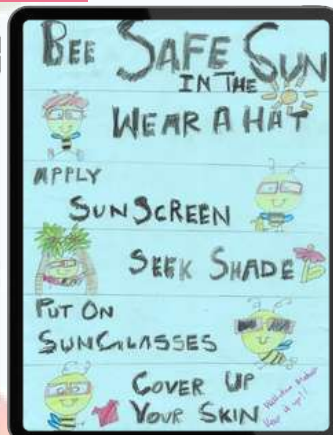 BEE SAFE SUN
IN THE
WEAR A HAT
APPLY
SUNSCREEN
SEEK SHADE
PUT ON
SUNGLASSES
COVER UP
YOUR SKIN